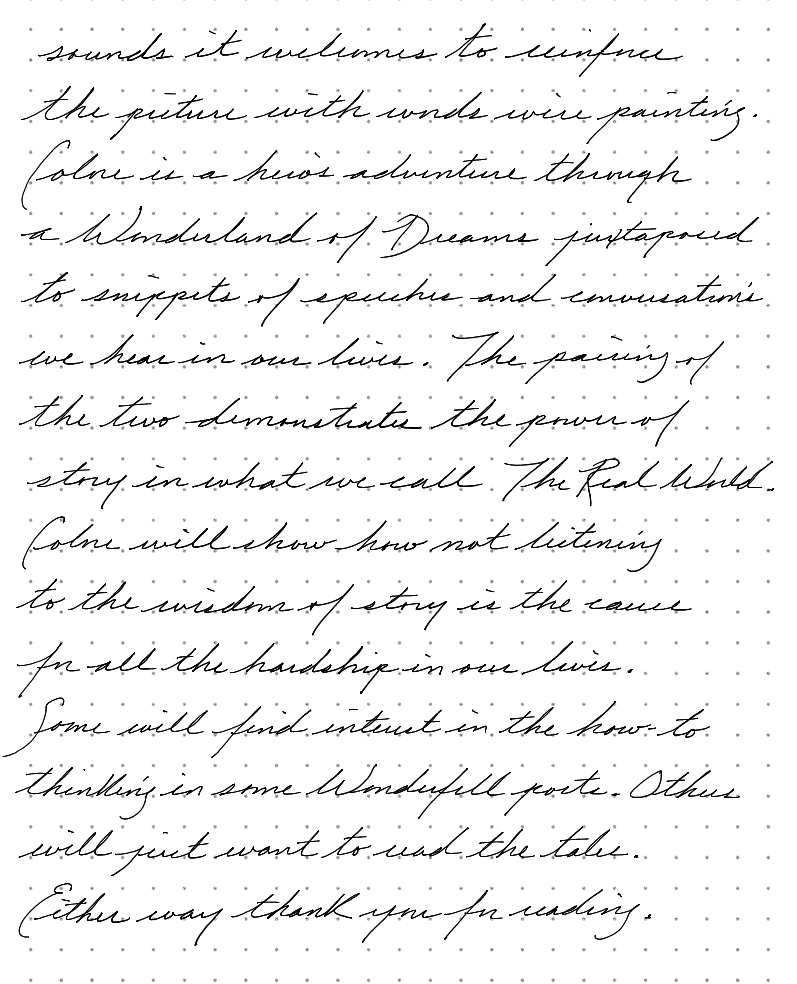 sounds it welcomes to reinforce
the picture with words we're painting.
Colore is a hero's adventure through
a Wonderland of Dreams juxtaposed
to snippets of speeches and conversations
we hear in our lives. The pairing of
the two demonstrates the power of
story in what we call The Real World.
Colore will show how not listening
to the wisdom of story is the cause
for all the hardship in our lives.
Some will find interest in the how-to
thinking in some Wonderfell posts. Others
will just want to read the tales.
Either way thank you for reading.